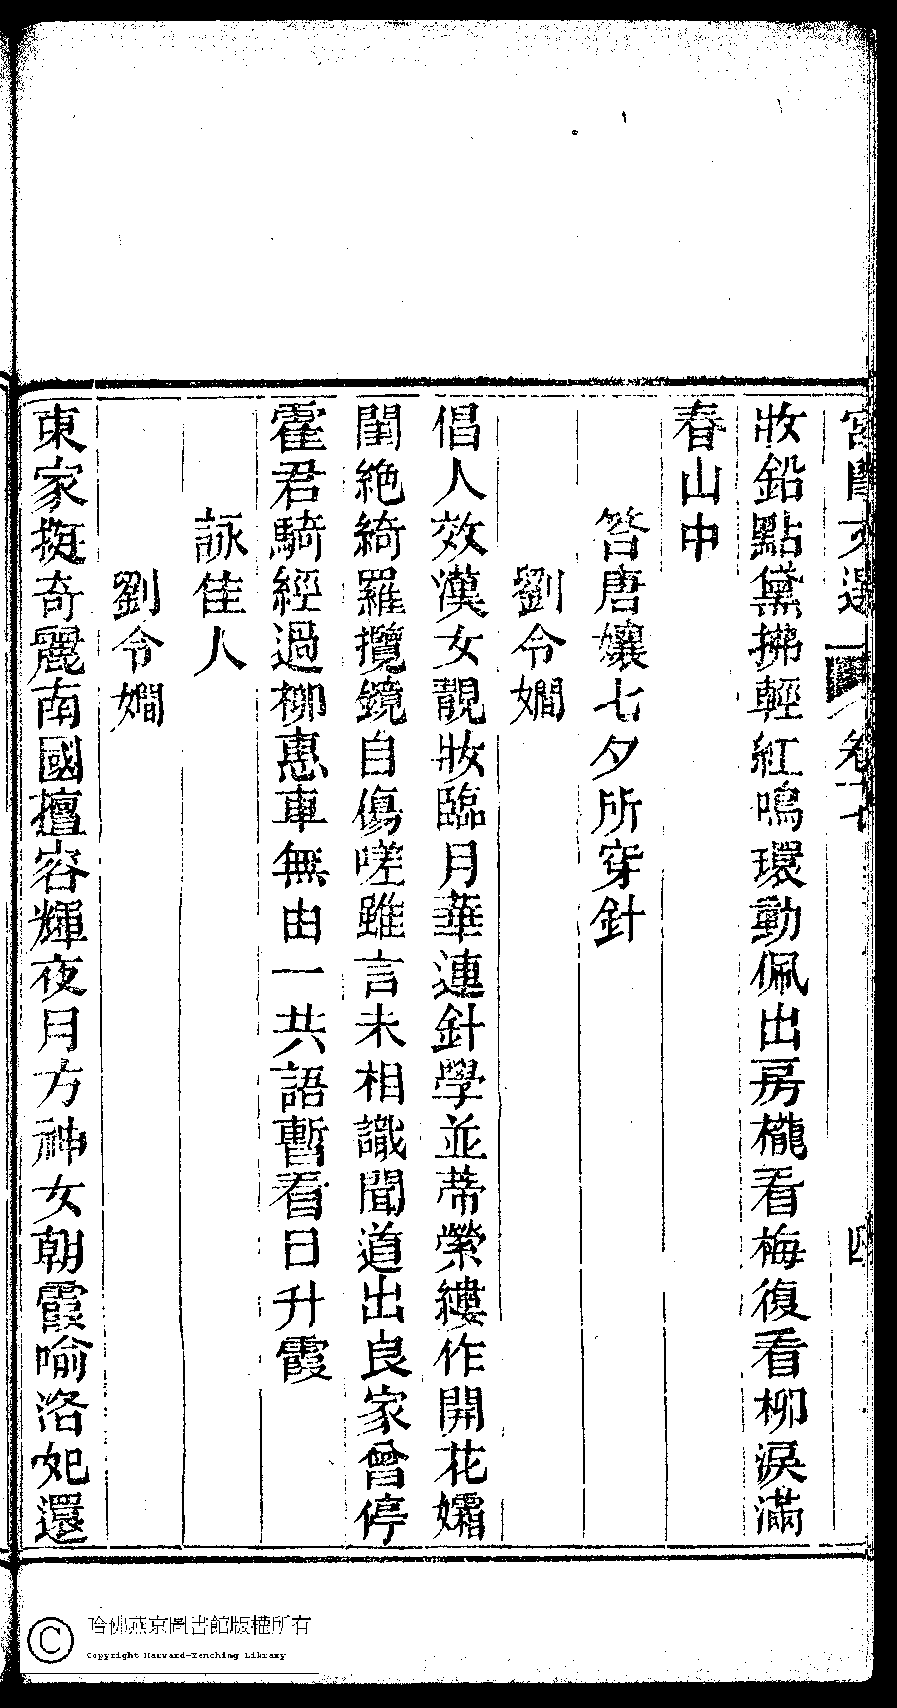 宮閨文選 卷十七 四
妝鉛點黛拂輕紅鳴環動佩出房櫳看梅復看柳淚滿
春山中
答唐孃七夕所穿針
劉令嫺
倡人效漢女靚妝臨月華連針學並蒂縈縷作開花孀
閨絶綺羅攬鏡自傷嗟雖言未相識聞道出良家曾停
霍君騎經過柳惠車無由一共語暫看日升霞
詠佳人
劉令嫺
東家挺奇麗南國擅容輝夜月方神女朝霞喻洛妃還
哈佛燕京圖書館版權所有
Copyright Harvard-Yenching Library